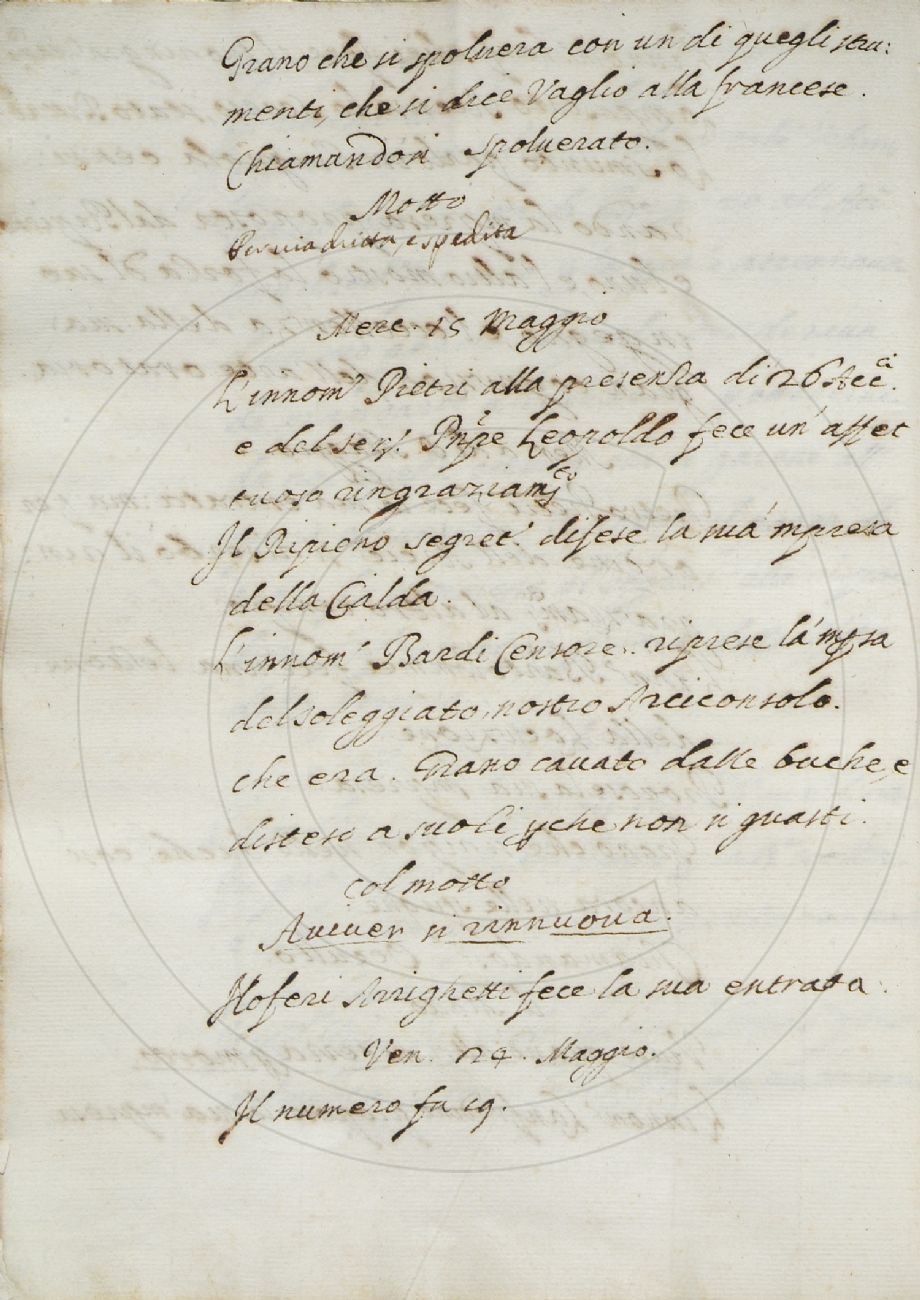 Grano che si spoluera con un di quegli stru:
menti, che si dice Vaglio alla francese.
Chiamandosi spoluerato.
Motto
Per via dritta, e spedita
Merc. 15 Maggio
L'innom.º Pietri alla presenza di 26 Acc.ci
e del ser. Pñpe Leopoldo fece un' affet
tuoso ringraziam.to
Il Ripieno segret.º difese la sua 'mpresa
della Cialda.
L'innom.º Bardi Censore. riprese la 'mpsa
del soleggiato, nostro Arciconsolo.
che era. Grano cauato dalle buche, e
disteso a suoli pche non si guasti.
col motto
A uiuer si rinnuoua.
Noferi Arrighetti fece la sua entrata.
Ven. 24. Maggio.
Il numero fu 19.